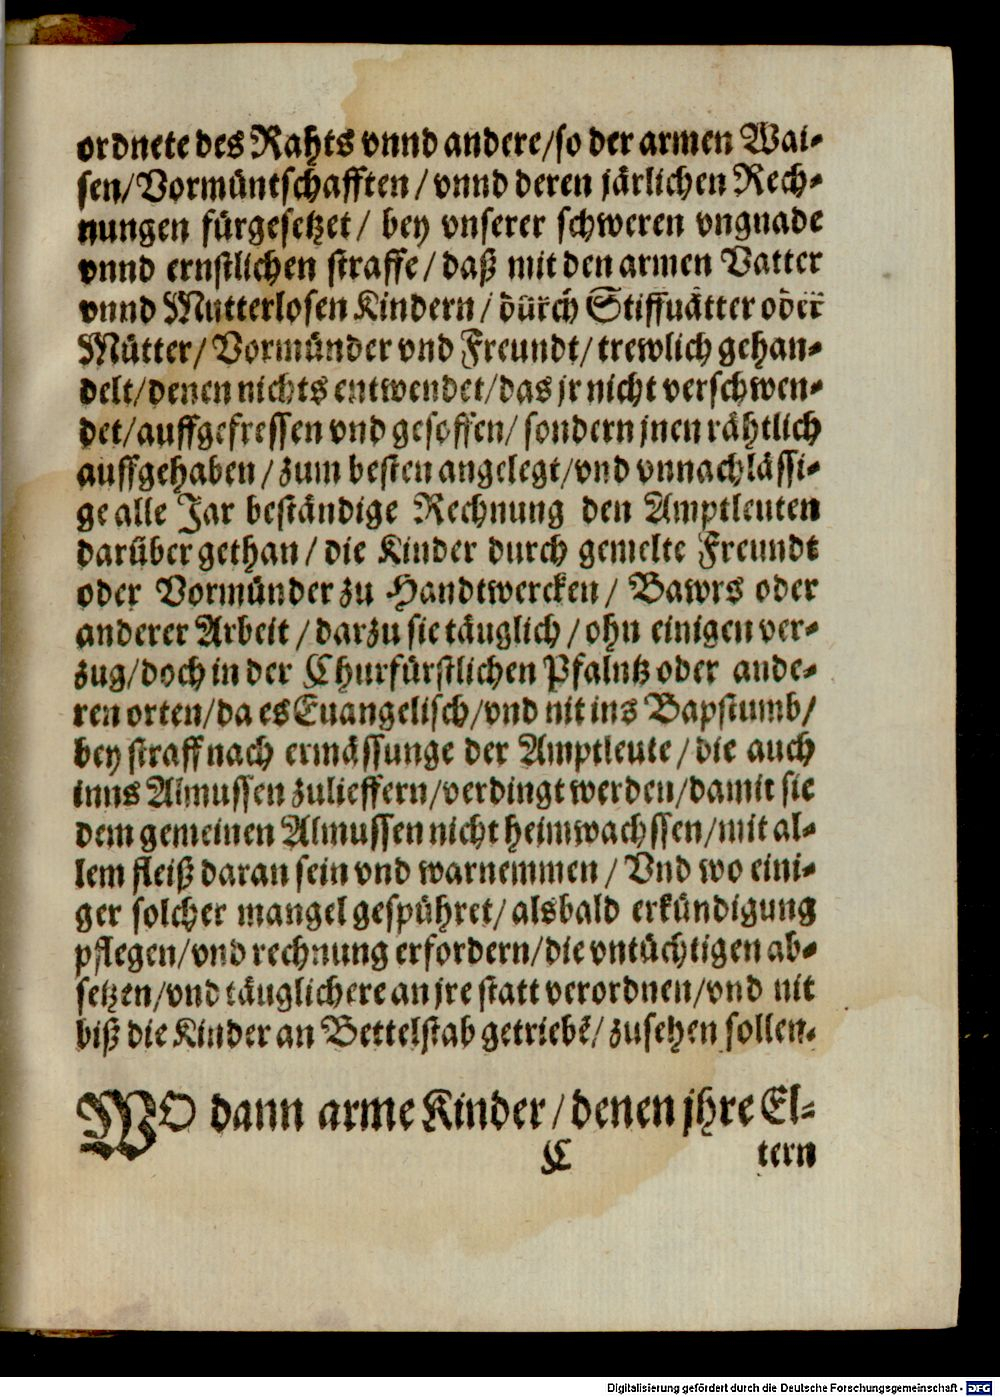 ordnete des Rahts vnnd andere/so der armen Wai-
sen/Vormüntschafften/vnnd deren järlichen Rech-
nungen fürgesetzet/ bey vnserer schweren vngnade
vnnd ernstlichen straffe/daß mit den armen Vatter
vnnd Mutterlosen Kindern/durch Stiffuätter oder
Mütter/Vormünder vnd Freundt/trewlich gehan-
delt/denen nichts entwendet/das jr nicht verschwen-
det/auffgefressen vnd gesoffen/sondern jnen rähtlich
auffgehaben/zum besten angelegt/vnd vnnachlässi-
ge alle Jar beständige Rechnung den Amptleuten
darüber gethan/die Kinder durch gemelte Freundt
oder Vormünder zu Handtwercken/ Bawrs oder
anderer Arbeit/darzu sie täuglich/ohn einigen ver-
zug/doch in der Churfürstlichen Pfalntz oder ande-
ren orten/da es Euangelisch/vnd nit ins Bapstumb/
bey straff nach ermässunge der Amptleute/die auch
inns Almussen zulieffern/verdingt werden/damit sie
dem gemeinen Almussen nicht heimwachssen/mit al-
lem fleiß daran sein vnd warnemmen/Vnd wo eini-
ger solcher mangel gespühret/alsbald erkündigung
pflegen/vnd rechnung erfordern/die vntüchtigen ab-
setzen/vnd täuglichere an jre statt verordnen/vnd nit
biß die Kinder an Bettelstab getriebē/zusehen sollen.
WO dann arme Kinder/denen jhre El-
C tern
Digitalisierung gefördert durch die Deutsche Forschungsgemeinschaft - DFG